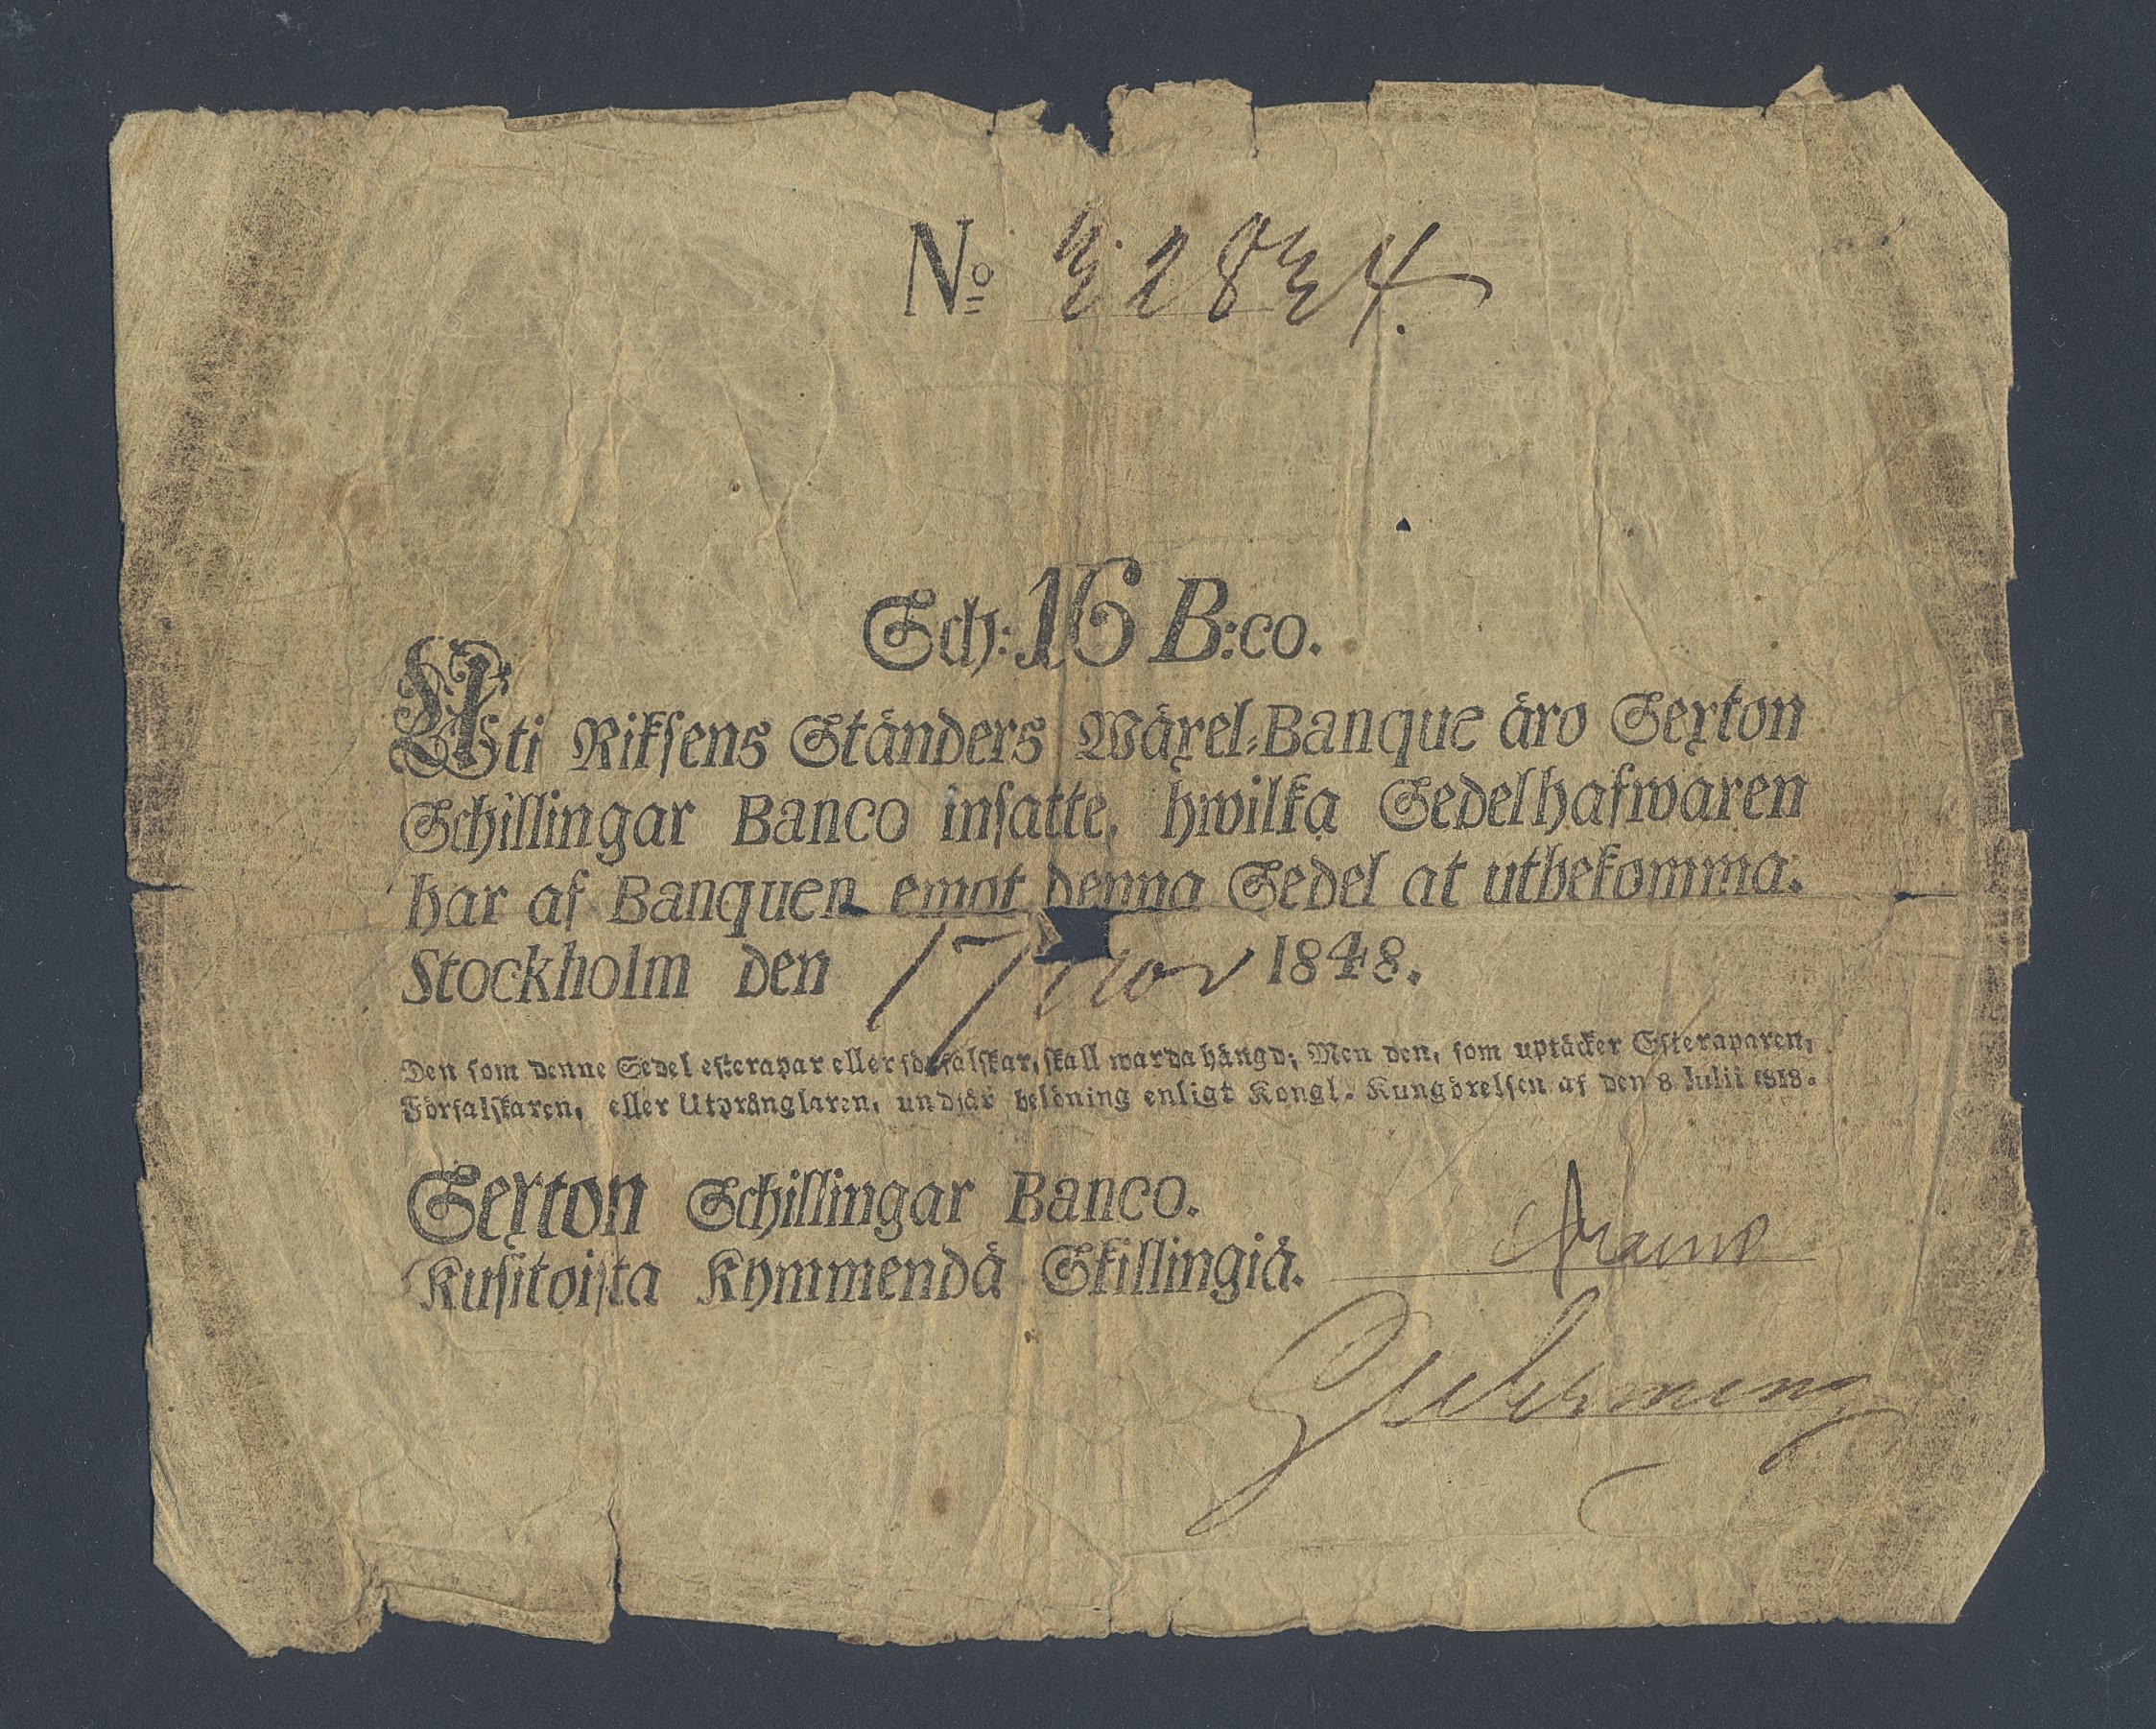 No 32834.
Sch: 16 B:co.
Uti Riksens Ständers Wäxel-Banque äro Sexton
Schillingar Banco insatte, hwilka Sedelhafwaren
har af Banquen emot denna Sedel at utbekomma.
Stockholm den 17 nov 1848.
Den som denne Sedel efterapar eller förfalskar, skall warda hängd; Men den, som uptäcker Efteraparen,
Förfalskaren, eller Utprånglaren, undfår belöning enligt Kongl. Kungörelsen af den 8 Julii 1818.
Sexton Schillingar Banco.
Kusitoista Kymmendä Skillingiä.